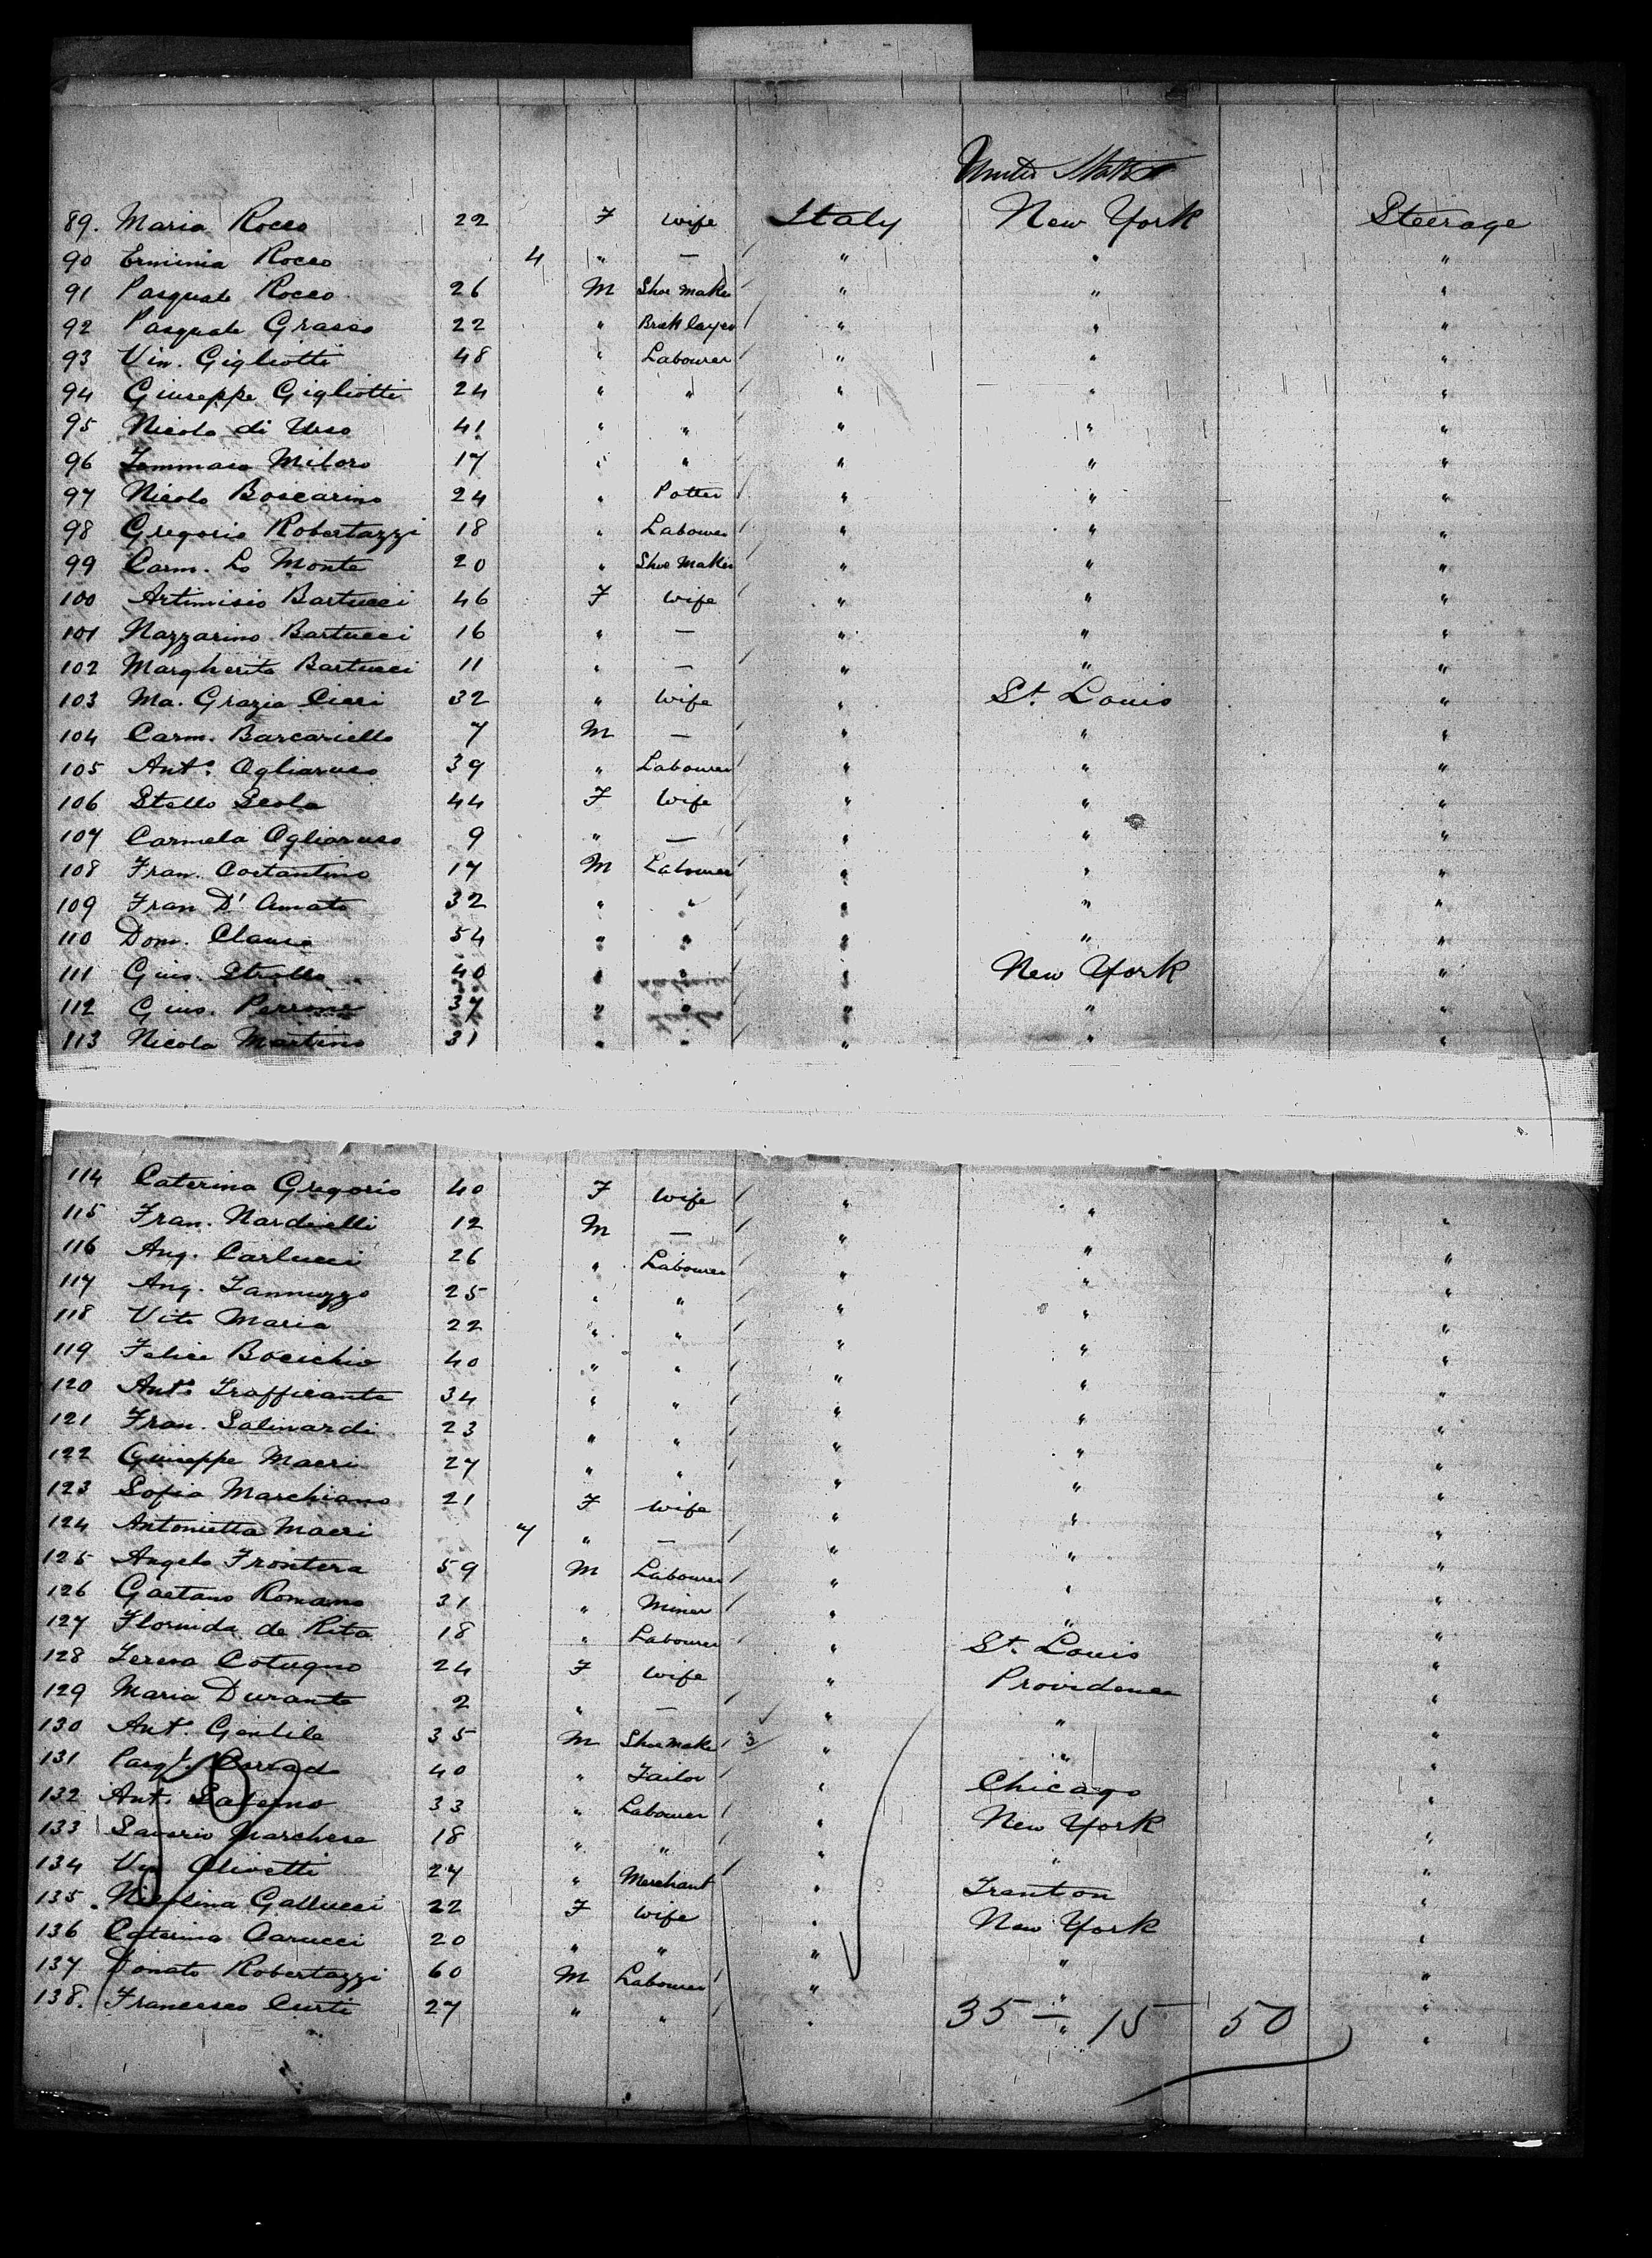 United States
89. Maria Rocco 22 F wife Italy New York Steerage
90 Erminia Rocco 4 " — " " "
91 Pasquale Rocco 26 M Shoe maker " " "
92 Pasquale Grasso 22 " Bricklayer " " "
93 Vin. Gigliotti 48 " Labourer " " "
94 Giuseppe Gigliotti 24 " " " " "
95 Nicola di Urso 41 " " " " "
96 Tommaso Miloro 17 " " " " "
97 Nicolo Boscarino 24 " Potter " " "
98 Gregorio Robertazzi 18 " Labourer " " "
99 Carm. Lo Monte 20 " Shoe Maker " " "
100 Artimisio Bartucci 46 F wife " " "
101 Nazzarino Bartucci 16 " — " " "
102 Margherita Bartucci 11 " — " " "
103 Ma. Grazia Cieri 32 " wife " St. Louis "
104 Carm. Barcariello 7 M — " " "
105 Anto. Ogliaruso 39 " Labourer " " "
106 Stella Scola 44 F wife " " "
107 Carmela Ogliaruso 9 " — " " "
108 Fran. Costantino 17 M Labourer " " "
109 Fran D'Amato 32 " " " " "
110 Dom. 54 " " " " "
111 Gius. Strollo 40 " " " New York "
112 Gius. Perrone 37 " " " " "
113 Nicola Martino 31 " " " " "
114 Caterina Gregorio 40 F wife " " "
115 Fran. Nardinelli 12 M — " " "
116 Ang. Carlucci 26 " Labourer " " "
117 Ang. Iannuzzo 25 " " " " "
118 Vito Maria 22 " " " " "
119 Felice Bocichio 40 " " " " "
120 Anto. Trafficante 34 " " " " "
121 Fran. Salinardi 23 " " " " "
122 Giuseppe Macri 27 " " " " "
123 Sofia Marchiano 21 F wife " " "
124 Antonietta Macri 7 " — " " "
125 Angelo Frontera 59 M Labourer " " "
126 Gaetano Romano 31 " Miner " " "
127 Florinda de Rita 18 " Labourer " St. Louis "
128 Teresa Cotugno 24 F wife " Providence "
129 Maria Durante 2 " — " " "
130 Ant. Gentile 35 M Shoemaker 3 " " "
131 Pasq. Corrado 40 " Tailor " Chicago "
132 Ant. Salerno 33 " Labourer " New York "
133 Saverio Marchese 18 " " " " "
134 Vin Olivetti 27 " Merchant " Trenton "
135. Nicolina Gallucci 22 F wife " New York "
136 Caterina Carucci 20 " " " " "
137 Donato Robertazzi 60 M Labourer " " "
138. Francesco Curti 27 " " " " "
35 — 15 50